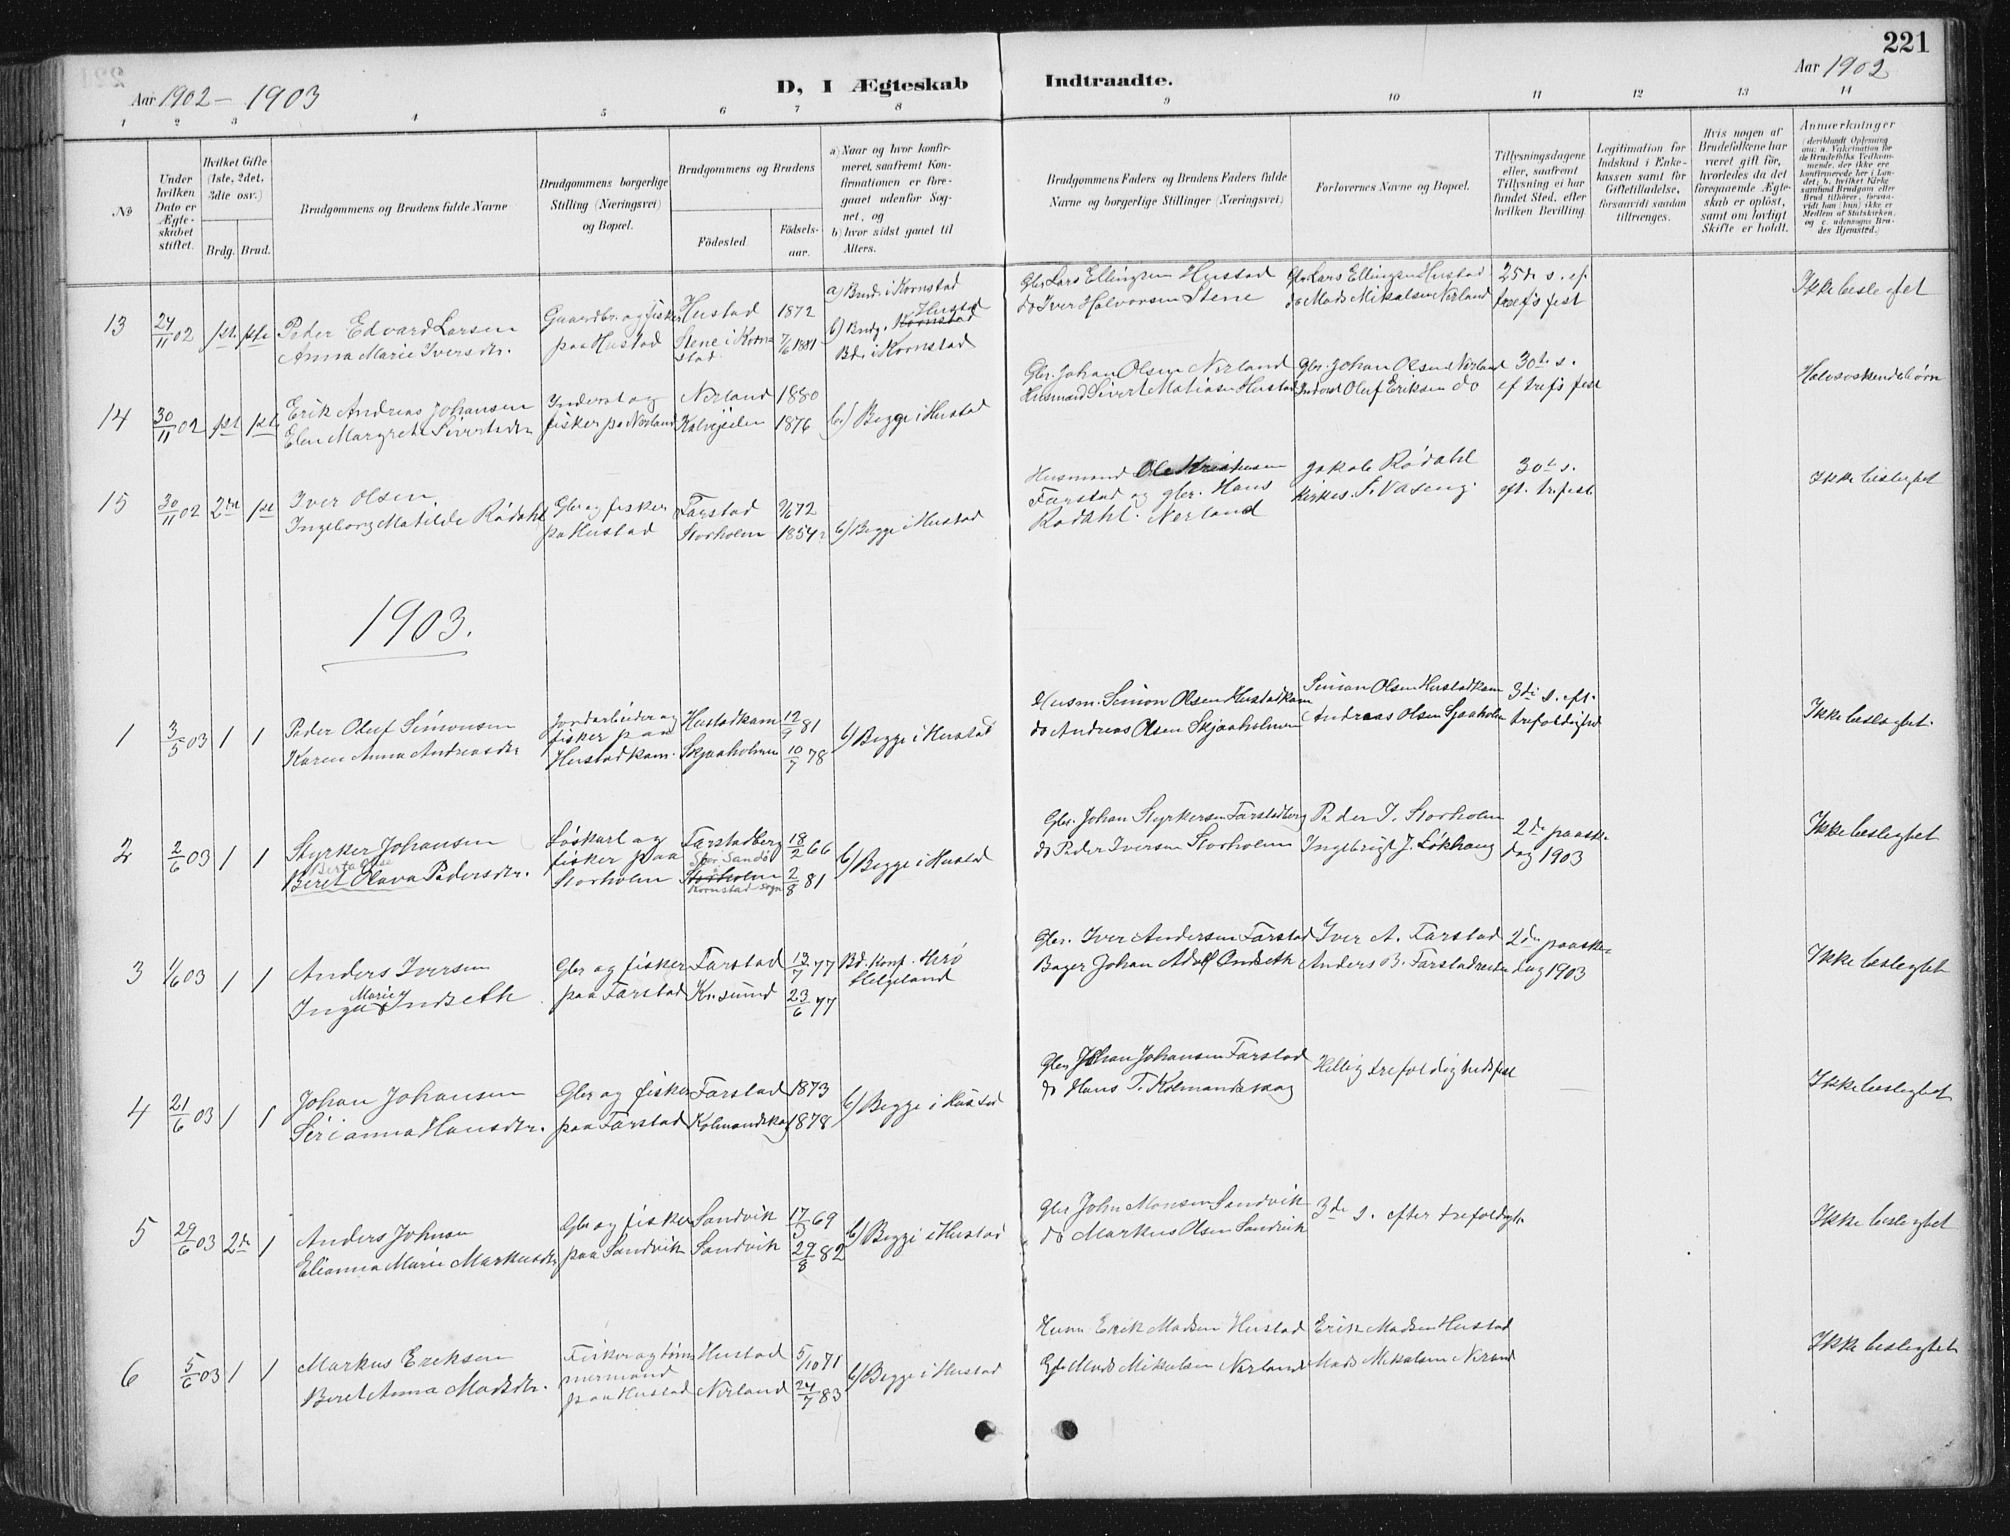 221
Aar 1902 - 1903
D, I Ægteskab Indtraadte.
Aar 1902
1 2 3 4 5 6 7 8 9 10 11 12 13 14
No
Under hvilken Dato er Ægteskabet stiftet.
Hvilket Gifte (1ste, 2det, 3die osv.)
Brdg. Brud.
Brudgommens og Brudens fulde Navne
Brudgommens borgerlige Stilling (Næringsvei) og Bopæl.
Brudgommens og Brudens
Födested.
Födsels-aar.
a) Naar og hvor konfirmeret, saafremt Konfirmationen er foregaaet udenfor Sognet, og
b) hvor sidst gaaet til Alters.
Brudgommens Faders og Brudens Faders fulde Navne og borgerlige Stillinger (Næringsvei)
Forlovernes Navne og Bopæl.
Tillysningsdagene eller, saafremt Tillysning ei har fundet Sted, efter hvilken Bevilling.
Legitimation for Indskud i Enkekassen samt for Giftetilladelse, forsaavidt saadan tiltrænges.
Hvis nogen af Brudefolkene har været gift før, hvorledes da det foregaaende Ægteskab er oplöst, samt om lovligt Skifte er holdt.
Anmærkninger
13 24/11 02 1st. 1ste Peder Edvard Larsen
Anna Marie Iversdr.
Gaardbr. og fisker
paa Hustad
Hustad 1872
Stene i Kornstad 7/6 1881
a) Brud. i Kornstad
b) Brdg. Kornstad Hustad
Bd. i Kornstad
Gbr. Lars Ellingsen Hustad
do Iver Halvorsen Stene
Gbr. Lars Ellingsen Hustad
do Mads Mikalsen Nerland
25de s. ef.
trefs fest
Ikke beslegtet
14 30/11 02 1st 1st Erik Andreas Johansen
Elen Margrete Sivertsdr
Inderst og
fisker pa Nerland
Nerland 1880
1876
b.) Begge i Hustad
Gbr. Johan Olsen Nerland
Husmand Sivert Matiasen Hustad
Gbr. Johan Olsen Nerland
Inderst Oluf Eriksen do
30te s.
ef trefs fest
Halvsøskendebørn
15 30/11 02 2den 1st Iver Olsen
Ingeborg Matilde Rødahl
Gbr og fisker
pa Hustad
Farstad 72
Storholm 1854
b) Begge i Hustad
Husmand Ole
Farstad og gbr. Hans
Rødahl. Nerland
Jakob Rødahl
Kirkes. S. Vaseng.
30te s.
eft. trefest
Ikke beslegtet
1903.
1 3/5 03 1 1 Peder Oluf Simonsen
Karen Anna Andreasdr
Jordarbeider og
fisker paa
Hustadkam.
Hustadkam 12/9 81
Skjaaholmen 10/7 78
b) Begge i Hustad
Husm. Simon Olsen Hustadkam
do Andreas Olsen Skjaaholmen
Simon Olsen Hustadkam
Andreas Olsen Sjaaholm
3di s. eft.
trefoldighed
Ikke beslegtet.
2 2/6 03 1 1 Styrker Johansen
Berta Olise
Beret Olava Pedersdr.
Løskarl og
fisker paa
Storholm
Farstadberg 18/2 66
Stor Sandö
Storholm 2/8 81
Kornstad sogn
b) Begge i Hustad
Gbr. Johan Styrkersen Farstadberg
do Peder Iversen Storholm
Peder I. Storholm
Ingebrigt J. Løkhaug
2de paaske
dag 1903
Ikke beslegtet
3 1/6 03 1 1 Anders Iversen
Inga Marie Indseth
Gbr og fisker
paa Farstad
Farstad 13/7 77
Kr.sund 23/6 77
Bd. Konf. Herø
Helgeland
Gbr. Iver Andersen Farstad
Bager Johan Adolf Indseth
Iver A. Farstad
Anders B.
2den paaske
dag 1903
Ikke beslegtet
4 21/6 03 1 1 Johan Johansen
Serianna Hansdr.
Gbr og fisker
paa Farstad
Farstad 1873
Kolmandskog 1878
b) Begge i Hustad
Gbr Johan Johansen Farstad
do Hans T. Kolmandskog
Hellig trefoldighedsfest
Ikke beslegtet
5 29/6 03 2de 1 Anders Johnsen
Elianna Marie Markusdr
Gbr og fisker
paa Sandvik
Sandvik 17/5 69
Sandvik 29/8 82
b) Begge i Hustad
Gbr John Monsen Sandvik
do Markus Olsen Sandvik
3de s. efter trefoldigh.
Ikke beslegtet
6 5/6 03 1 1 Markus Eriksen
Beret Anna Madsdr.
Fisker og tøm-
mermand
paa Hustad
Hustad 5/10 71
Nerland 24/7 83
b) Begge i Hustad
Husm Erik Madsen Hustad
Gbr Mads Mikalsen Nerland
Erik Madsen Hustad
Mads Mikalsen Nerland
Ikke beslegtet